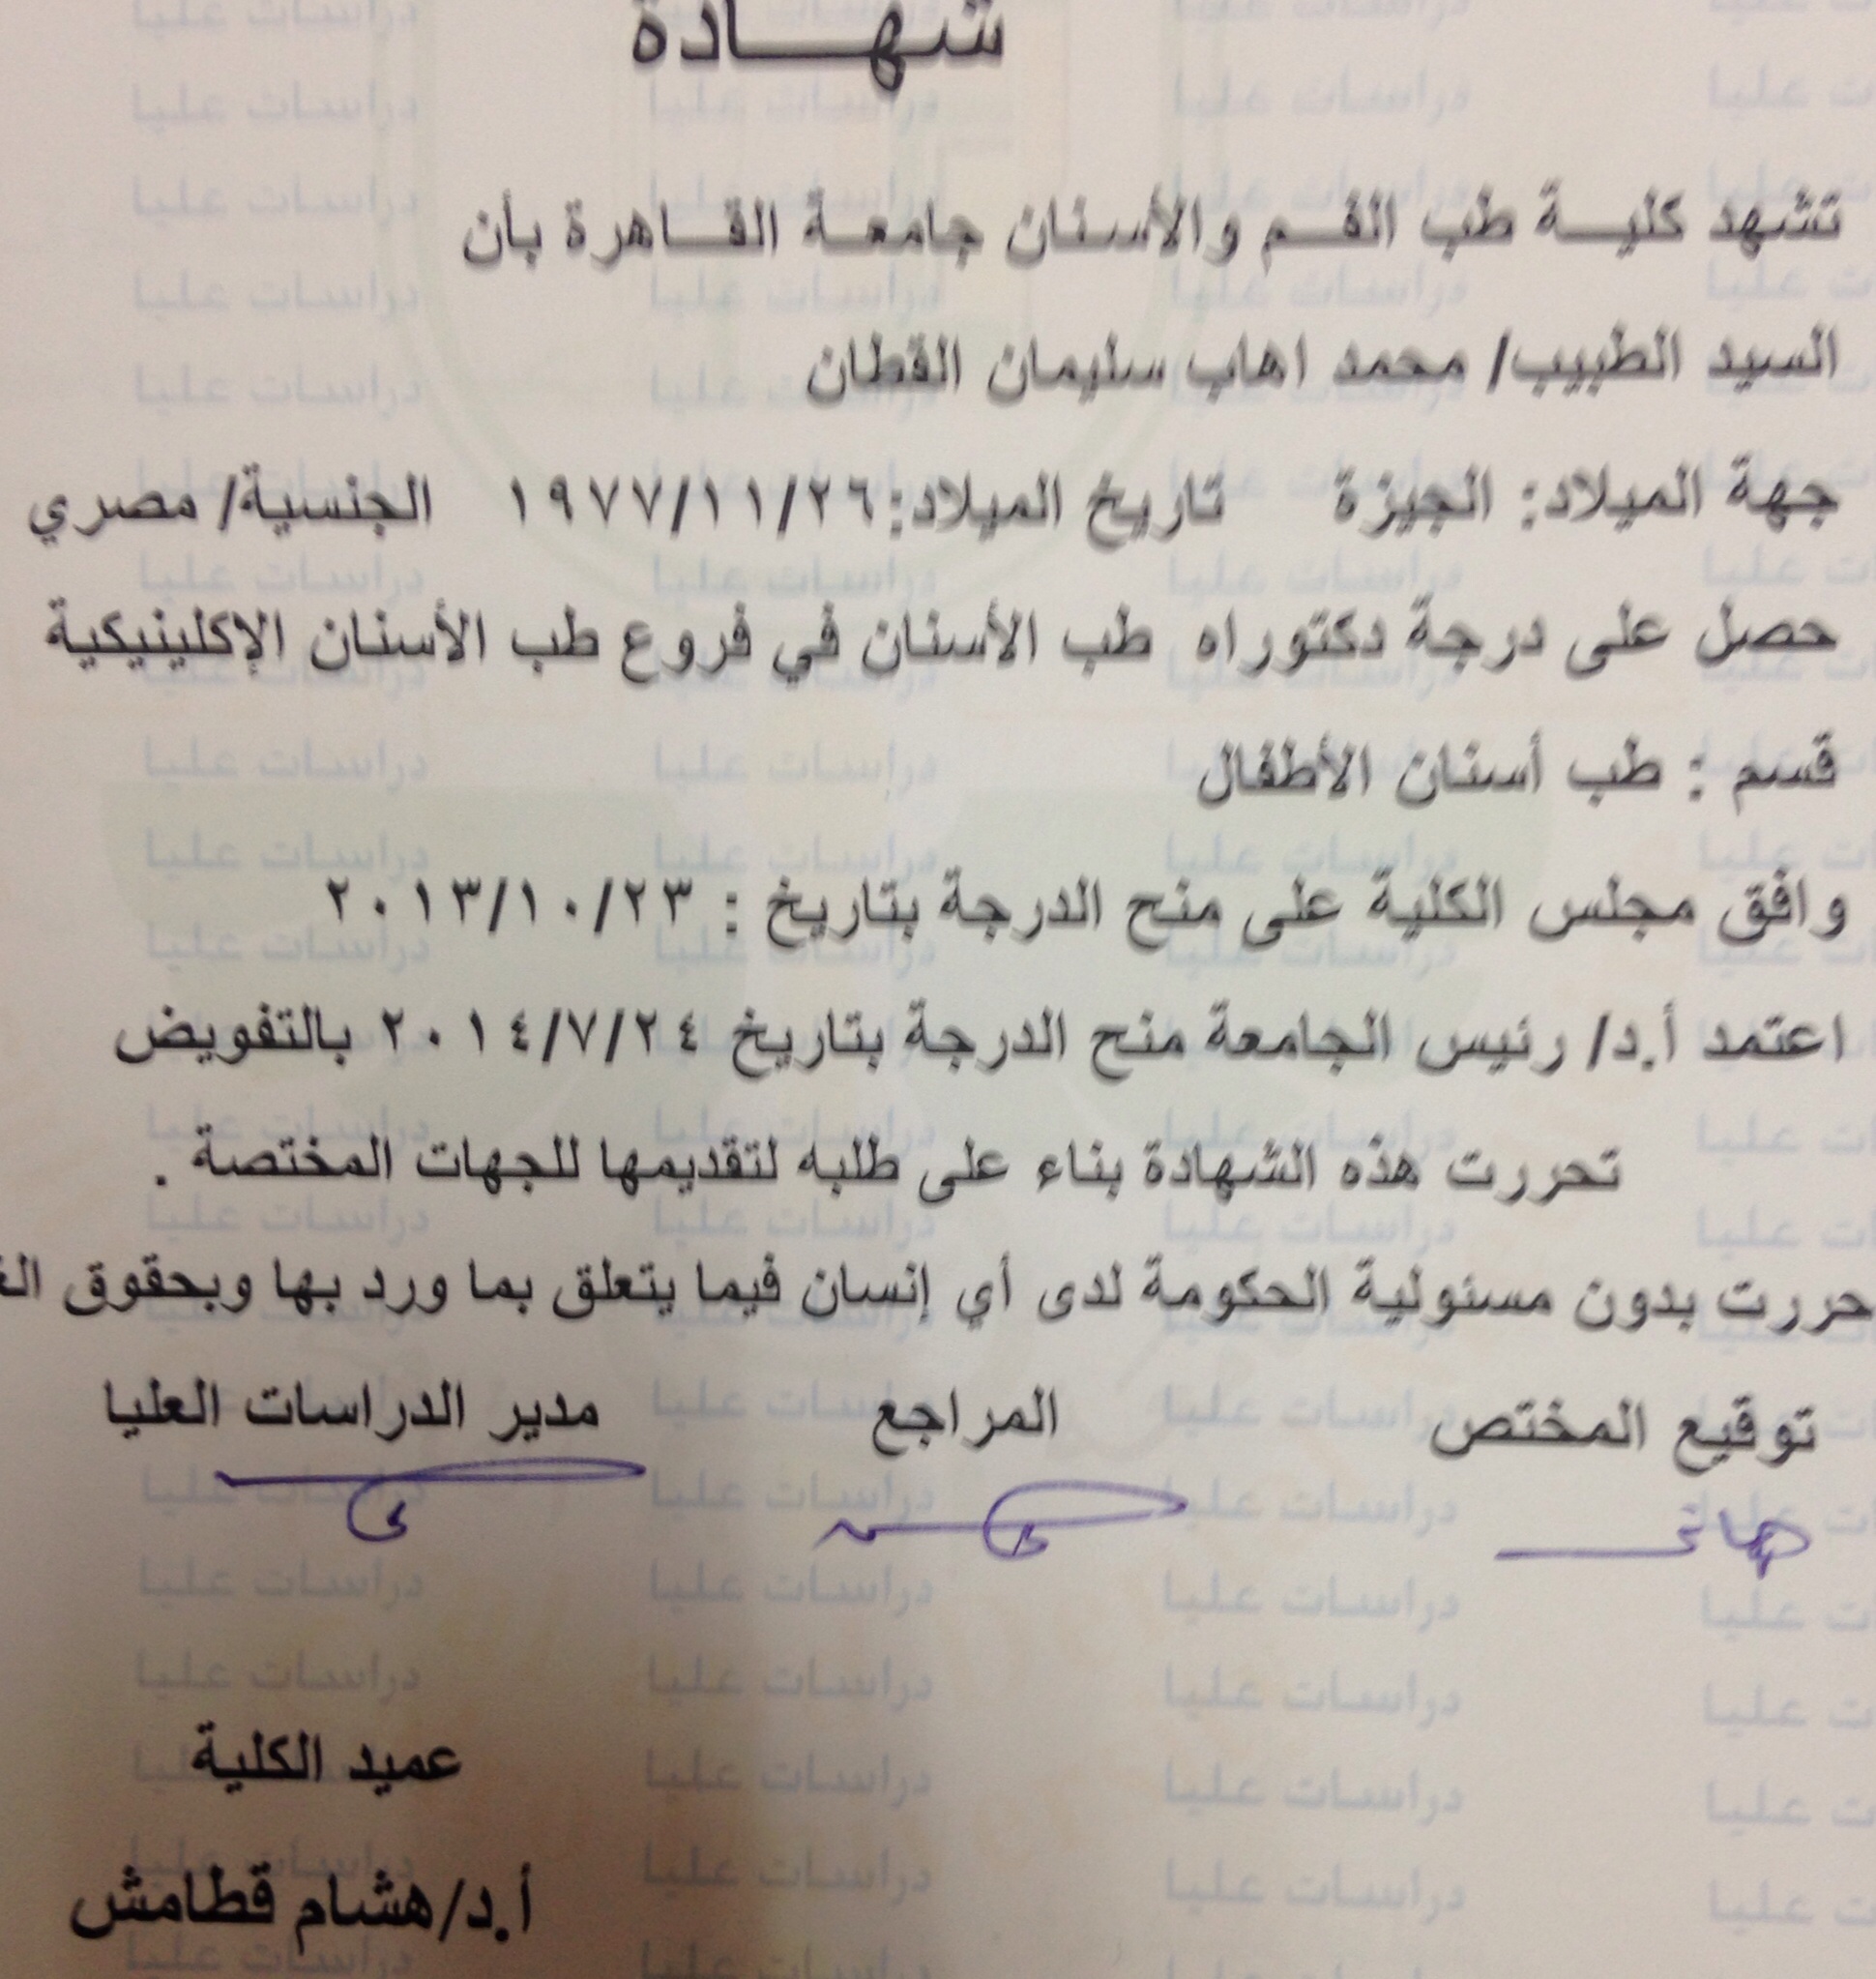 شهادة
تشهد كلية طب الفم والأسنان جامعة القاهرة بأن
السيد الطبيب/ محمد اهاب سليمان القطان
جهة الميلاد: الجيزة تاريخ الميلاد: ١٩٧٧/١١/٢٦ الجنسية/ مصري
حصل على درجة دكتوراه طب الأسنان في فروع طب الأسنان الإكلينيكية
قسم : طب أسنان الأطفال
وافق مجلس الكلية على منح الدرجة بتاريخ : ٢٠١٣/١٠/٢٣
اعتمد أ.د/ رئيس الجامعة منح الدرجة بتاريخ ٢٠١٤/٧/٢٤ بالتفويض
تحررت هذه الشهادة بناء على طلبه لتقديمها للجهات المختصة .
حررت بدون مسئولية الحكومة لدى أي إنسان فيما يتعلق بما ورد بها وبحقوق
توقيع المختص المراجع مدير الدراسات العليا
هانى
عميد الكلية
أ.د/هشام قطامش
دراسات عليا